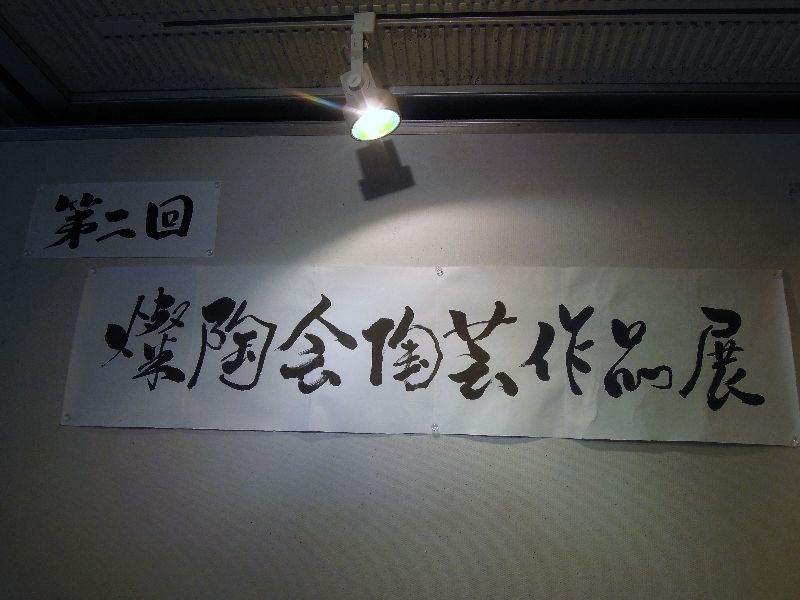 第二回
燦陶会陶芸作品展